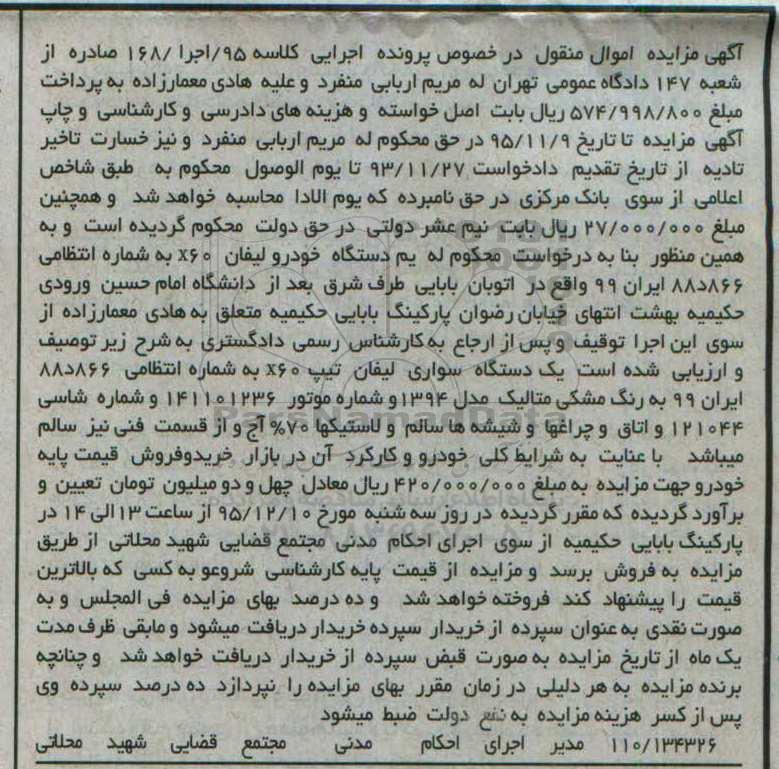 آگهی مزایده اموال منقول در خصوص پرونده اجرایی کلاسه ۹۵/اجرا /۱۶۸ صادره از
شعبه ۱۴۷ دادگاه عمومی تهران له مریم اربابی منفرد و علیه هادی معمارزاده به پرداخت
مبلغ ۵۷۴/۹۹۸/۸۰۰ ریال بابت اصل خواسته و هزینه های دادرسی و کارشناسی و چاپ
آگهی مزایده تا تاریخ ۹۵/۱۱/۹ در حق محکوم له مریم اربابی منفرد و نیز خسارت تاخیر
تادیه از تاریخ تقدیم دادخواست ۹۳/۱۱/۲۷ تا یوم الوصول محکوم به طبق شاخص
اعلامی از سوی بانک مرکزی در حق نامبرده که یوم الادا محاسبه خواهد شد و همچنین
مبلغ ۲۷/۰۰۰/۰۰۰ ریال بابت نیم عشر دولتی در حق دولت محکوم گردیده است و به
همین منظور بنا به درخواست محکوم له یم دستگاه خودرو لیفان x۶۰ به شماره انتظامی
۸۶۶د۸۸ ایران ۹۹ واقع در اتوبان بابایی طرف شرق بعد از دانشگاه امام حسین ورودی
حکیمیه بهشت انتهای خیابان رضوان پارکینگ بابایی حکیمیه متعلق به هادی معمارزاده از
سوی این اجرا توقیف و پس از ارجاع به کارشناس رسمی دادگستری به شرح زیر توصیف
و ارزیابی شده است یک دستگاه سواری لیفان تیپ x۶۰ به شماره انتظامی ۸۶۶د۸۸
ایران ۹۹ به رنگ مشکی متالیک مدل ۱۳۹۴و شماره موتور ۱۴۱۱۰۱۲۳۶ و شماره شاسی
۱۲۱۰۴۴ و اتاق و چراغها و شیشه ها سالم و لاستیکها ۷۰% آج و از قسمت فنی نیز سالم
میباشد با عنایت به شرایط کلی خودرو و کارکرد آن در بازار خریدوفروش قیمت پایه
خودرو جهت مزایده به مبلغ ۴۲۰/۰۰۰/۰۰۰ ریال معادل چهل و دو میلیون تومان تعیین و
برآورد گردیده که مقرر گردیده در روز سه شنبه مورخ ۹۵/۱۲/۱۰ از ساعت ۱۳الی ۱۴ در
پارکینگ بابایی حکیمیه از سوی اجرای احکام مدنی مجتمع قضایی شهید محلاتی از طریق
مزایده به فروش برسد و مزایده از قیمت پایه کارشناسی شروعو به کسی که بالاترین
قیمت را پیشنهاد کند فروخته خواهد شد و ده درصد بهای مزایده فی المجلس و به
صورت نقدی به عنوان سپرده از خریدار سپرده خریدار دریافت میشود و مابقی ظرف مدت
یک ماه از تاریخ مزایده به صورت قبض سپرده از خریدار دریافت خواهد شد و چنانچه
برنده مزایده به هر دلیلی در زمان مقرر بهای مزایده را نپردازد ده درصد سپرده وی
پس از کسر هزینه مزایده به نفع دولت ضبط میشود
۱۱۰/۱۳۴۳۲۶ مدیر اجرای احکام مدنی مجتمع قضایی شهید محلاتی
ParsNamadData